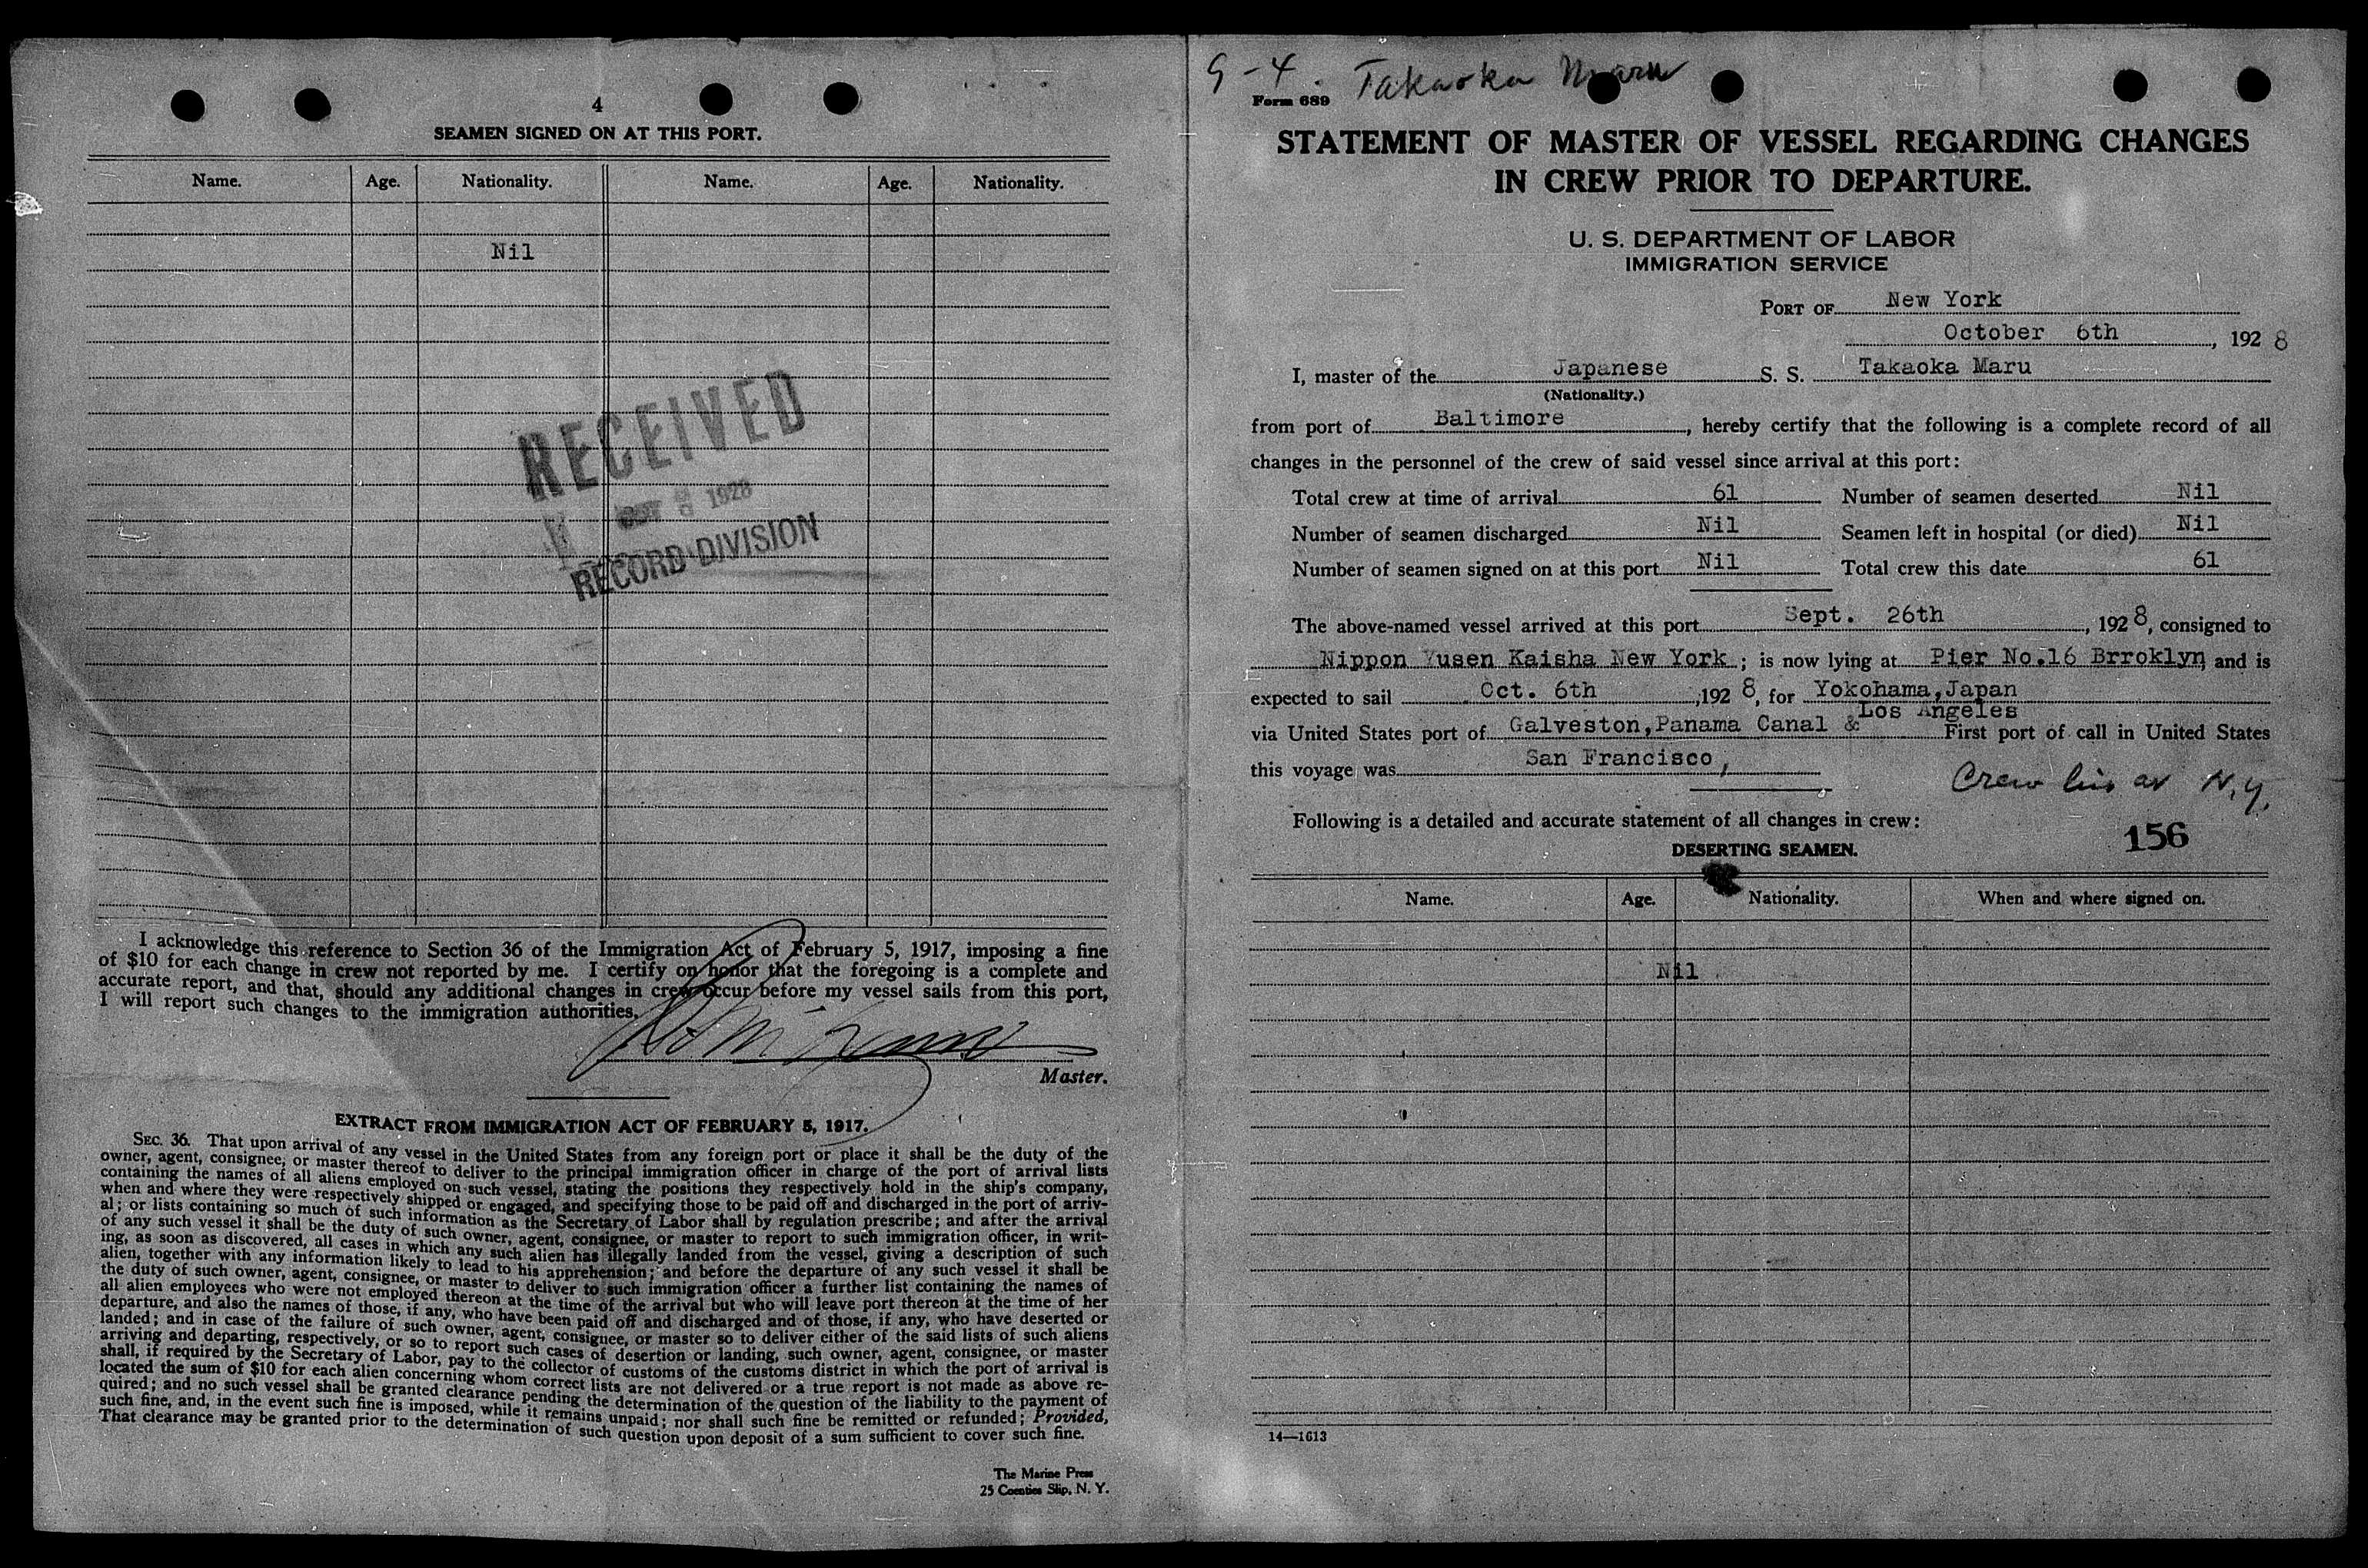 4
SEAMEN SIGNED ON AT THIS PORT.
Name. Age. Nationality. Name. Age. Nationality.
Nil
RECEIVED
1928
RECORD DIVISION
I acknowledge this reference to Section 36 of the Immigration Act of February 5, 1917, imposing a fine
of $10 for each change in crew not reported by me. I certify on honor that the foregoing is a complete and
accurate report, and that, should any additional changes in crew occur before my vessel sails from this port,
I will report such changes to the immigration authorities.
Master.
EXTRACT FROM IMMIGRATION ACT OF FEBRUARY 5, 1917.
SEC. 36. That upon arrival of any vessel in the United States from any foreign port or place it shall be the duty of the
owner, agent, consignee, or master thereof to deliver to the principal immigration officer in charge of the port of arrival lists
containing the names of all aliens employed on such vessel, stating the positions they respectively hold in the ship's company,
when and where they were respectively shipped or engaged, and specifying those to be paid off and discharged in the port of arriv-
al; or lists containing so much of such information as the Secretary of Labor shall by regulation prescribe; and after the arrival
of any such vessel it shall be the duty of such owner, agent, consignee, or master to report to such immigration officer, in writ-
ing, as soon as discovered, all cases in which any such alien has illegally landed from the vessel, giving a description of such
alien, together with any information likely to lead to his apprehension; and before the departure of any such vessel it shall be
the duty of such owner, agent, consignee, or master to deliver to such immigration officer a further list containing the names of
all alien employees who were not employed thereon at the time of the arrival but who will leave port thereon at the time of her
departure, and also the names of those, if any, who have been paid off and discharged and of those, if any, who have deserted or
landed; and in case of the failure of such owner, agent, consignee, or master so to deliver either of the said lists of such aliens
arriving and departing, respectively, or so to report such cases of desertion or landing, such owner, agent, consignee, or master
shall, if required by the Secretary of Labor, pay to the collector of customs of the customs district in which the port of arrival is
located the sum of $10 for each alien concerning whom correct lists are not delivered or a true report is not made as above re-
quired; and no such vessel shall be granted clearance pending the determination of the question of the liability to the payment of
such fine, and, in the event such fine is imposed, while it remains unpaid; nor shall such fine be remitted or refunded; Provided,
That clearance may be granted prior to the determination of such question upon deposit of a sum sufficient to cover such fine.
The Marine Press
25 Coenties Slip, N. Y.
9-4. Takaoka Maru
Form 689
STATEMENT OF MASTER OF VESSEL REGARDING CHANGES
IN CREW PRIOR TO DEPARTURE.
U. S. DEPARTMENT OF LABOR
IMMIGRATION SERVICE
PORT OF New York
October 6th, 1928
I, master of the Japanese S. S. Takaoka Maru
(Nationality.)
from port of Baltimore, hereby certify that the following is a complete record of all
changes in the personnel of the crew of said vessel since arrival at this port:
Total crew at time of arrival 61 Number of seamen deserted Nil
Number of seamen discharged Nil Seamen left in hospital (or died) Nil
Number of seamen signed on at this port Nil Total crew this date 61
The above-named vessel arrived at this port Sept. 26th, 1928, consigned to
Nippon Yusen Kaisha New York; is now lying at Pier No.16 Brroklyn, and is
expected to sail Oct. 6th, 1928, for Yokohama, Japan
via United States port of Galveston, Panama Canal & Los Angeles First port of call in United States
this voyage was San Francisco,
Crew lis at N.Y.
Following is a detailed and accurate statement of all changes in crew:
156
DESERTING SEAMEN.
Name. Age. Nationality. When and where signed on.
Nil
14—1613